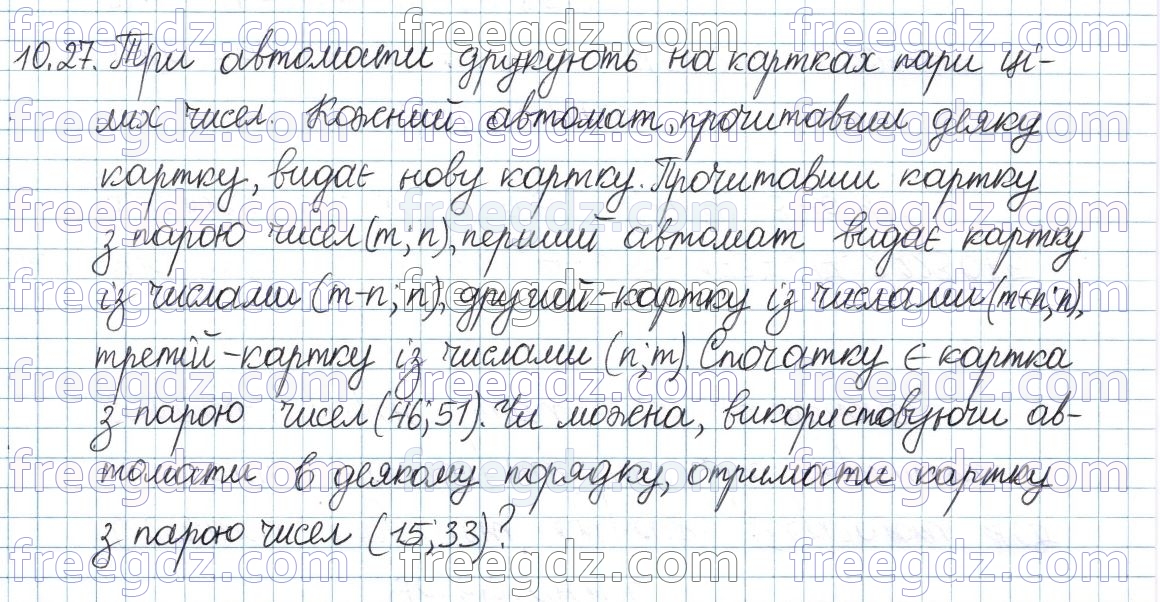 10.27. Три автомати друкують на картках пари ці-
лих чисел. Кожний автомат, прочитавши деяку
картку, видає нову картку. Прочитавши картку
з парою чисел (m; n), перший автомат видає картку
із числами (m-n; n), другий - картку із числами (m+n; n),
третій - картку із числами (n; m). Спочатку є картка
з парою чисел (46; 51). Чи можна, використовуючи ав-
томати в деякому порядку, отримати картку
з парою чисел (15; 33)?
freegdz.com